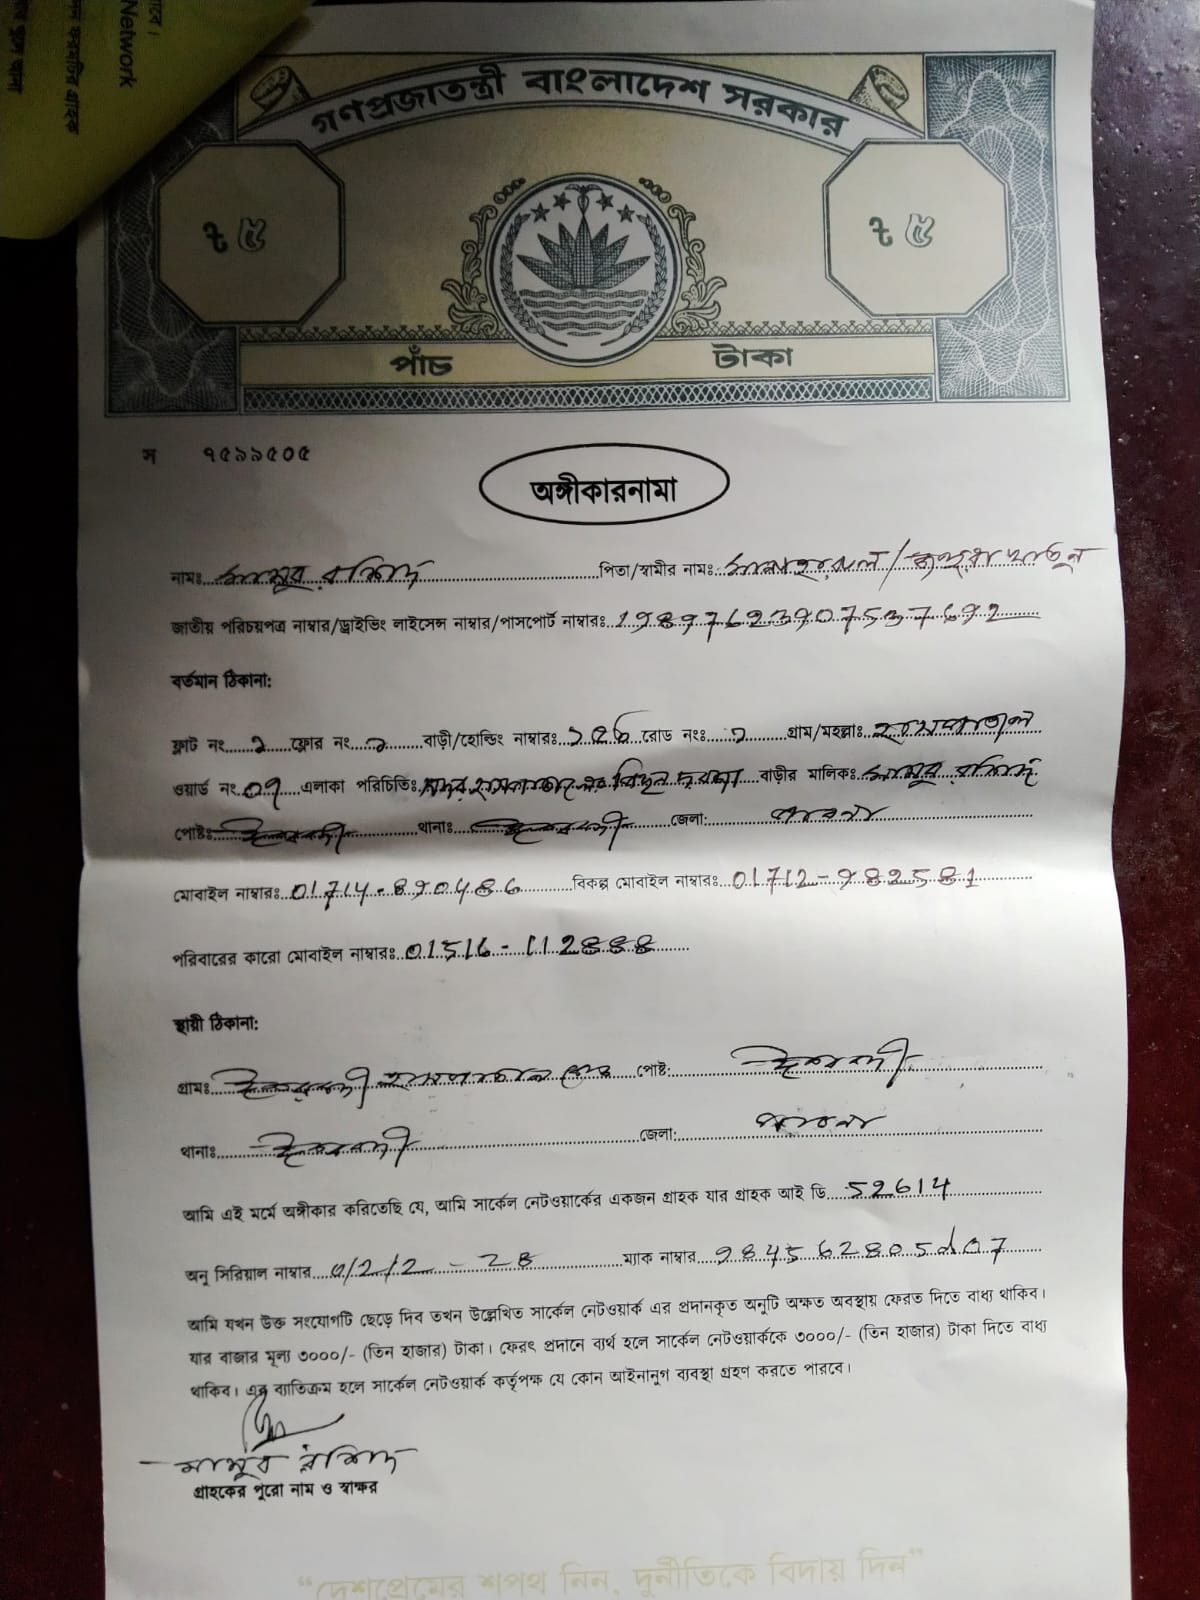 Network
গণপ্রজাতন্ত্রী বাংলাদেশ সরকার
৳ ৫ ৳ ৫
পাঁচ টাকা
স ৭৫৯৯৫০৫
অঙ্গীকারনামা
নামঃ রশিদ পিতা/স্বামীর নামঃ খাতুন
জাতীয় পরিচয়পত্র নাম্বার/ড্রাইভিং লাইসেন্স নাম্বার/পাসপোর্ট নাম্বারঃ
বর্তমান ঠিকানা:
ফ্লাট নং ফ্লোর নং বাড়ী/হোল্ডিং নাম্বারঃ রোড নংঃ গ্রাম/মহল্লাঃ
ওয়ার্ড নং 07 এলাকা পরিচিতিঃ বাড়ীর মালিকঃ রশিদ
পোষ্টঃ ঈশ্বরদী থানাঃ ঈশ্বরদী জেলা: পাবনা
মোবাইল নাম্বারঃ 01714-890486 বিকল্প মোবাইল নাম্বারঃ 01712-982581
পরিবারের কারো মোবাইল নাম্বারঃ 01516-112888
স্থায়ী ঠিকানা:
গ্রামঃ ঈশ্বরদী হাসপাতাল রোড পোষ্ট: ঈশ্বরদী
থানাঃ ঈশ্বরদী জেলা: পাবনা
আমি এই মর্মে অঙ্গীকার করিতেছি যে, আমি সার্কেল নেটওয়ার্কের একজন গ্রাহক যার গ্রাহক আই ডি 52614
অনু সিরিয়াল নাম্বার ম্যাক নাম্বার
আমি যখন উক্ত সংযোগটি ছেড়ে দিব তখন উল্লেখিত সার্কেল নেটওয়ার্ক এর প্রদানকৃত অনুটি অক্ষত অবস্থায় ফেরত দিতে বাধ্য থাকিব।
যার বাজার মূল্য ৩০০০/- (তিন হাজার) টাকা। ফেরৎ প্রদানে ব্যর্থ হলে সার্কেল নেটওয়ার্ককে ৩০০০/- (তিন হাজার) টাকা দিতে বাধ্য
থাকিব। এর ব্যাতিক্রম হলে সার্কেল নেটওয়ার্ক কর্তৃপক্ষ যে কোন আইনানুগ ব্যবস্থা গ্রহণ করতে পারবে।
রশিদ
গ্রাহকের পুরো নাম ও স্বাক্ষর
“দেশপ্রেমের শপথ নিন, দুর্নীতিকে বিদায় দিন”